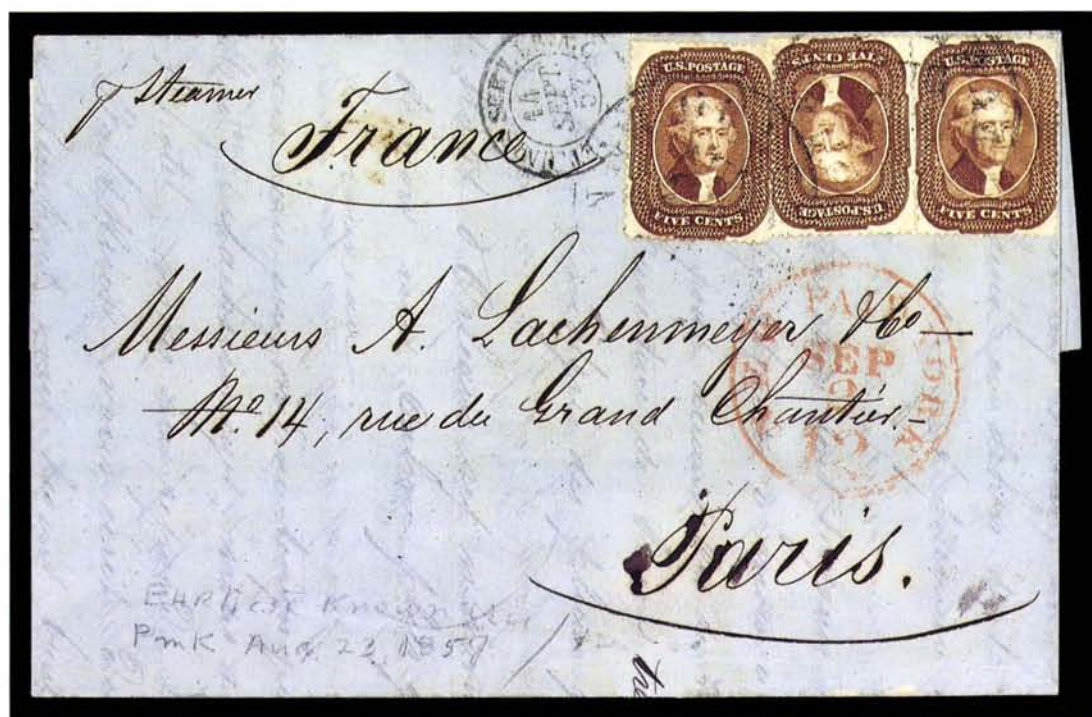 pr Steamer
France
U.S. POSTAGE
FIVE CENTS
U.S. POSTAGE
FIVE CENTS
U.S. POSTAGE
FIVE CENTS
SEPT.
PAID
SEP
2
12
Messieurs A. Lachenmeyer & Co
No. 14, rue du Grand Chantier.
Paris.
Earliest Known Use
Pmk Aug 23, 1857